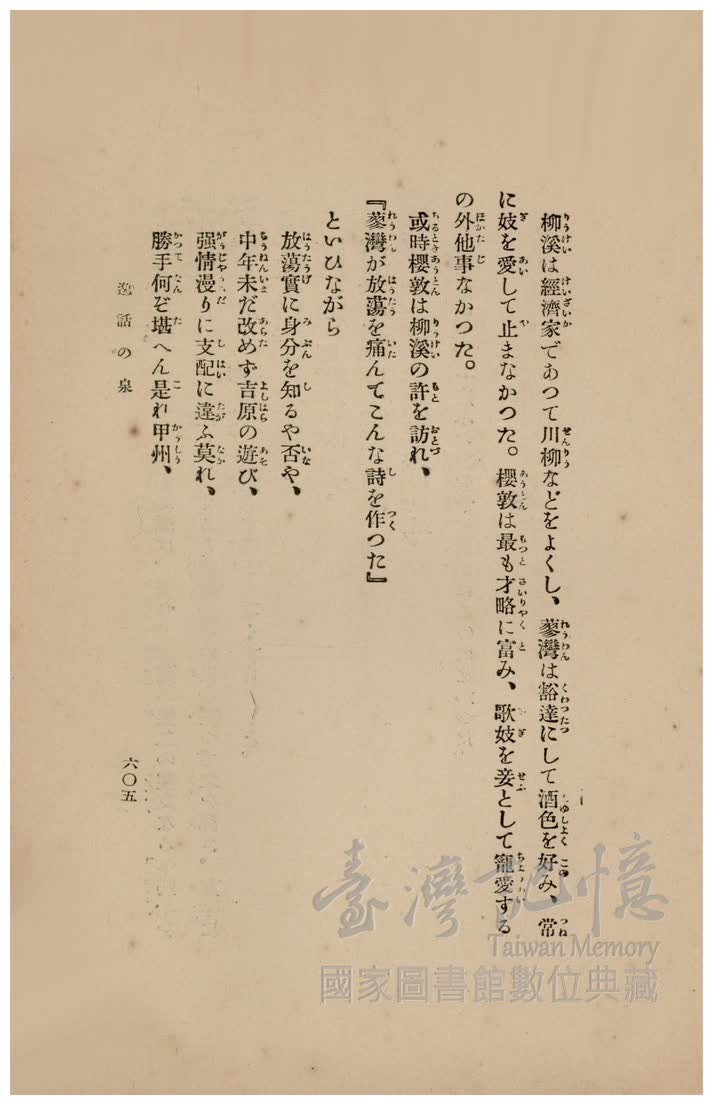 柳溪は經濟家であつて川柳などをよくし、蓼灣は豁達にして酒色を好み、常
に妓を愛して止まなかつた。櫻敦は最も才略に富み、歌妓を妾として寵愛する
の外他事なかつた。
或時櫻敦は柳溪の許を訪れ、
『蓼灣が放蕩を痛んでこんな詩を作つた』
といひながら
放蕩實に身分を知るや否や、
中年未だ改めず吉原の遊び、
强情漫りに支配に違ふ莫れ、
勝手何ぞ堪へん是れ甲州、
逸話の泉
六〇五
臺灣記憶
Taiwan Memory
國家圖書館數位典藏